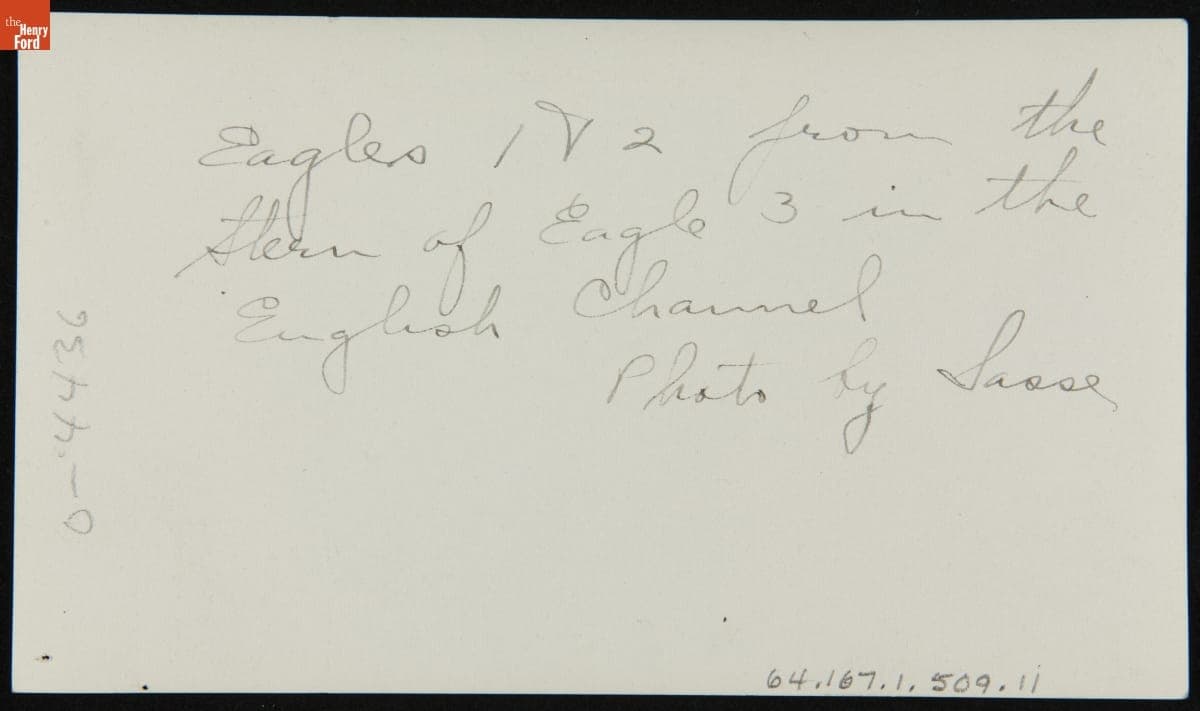 the
Henry
Ford
Eagles 1 & 2 from the
Stern of Eagle 3 in the
English Channel
Photo by Sasse
0-4436
64.167.1.509.11